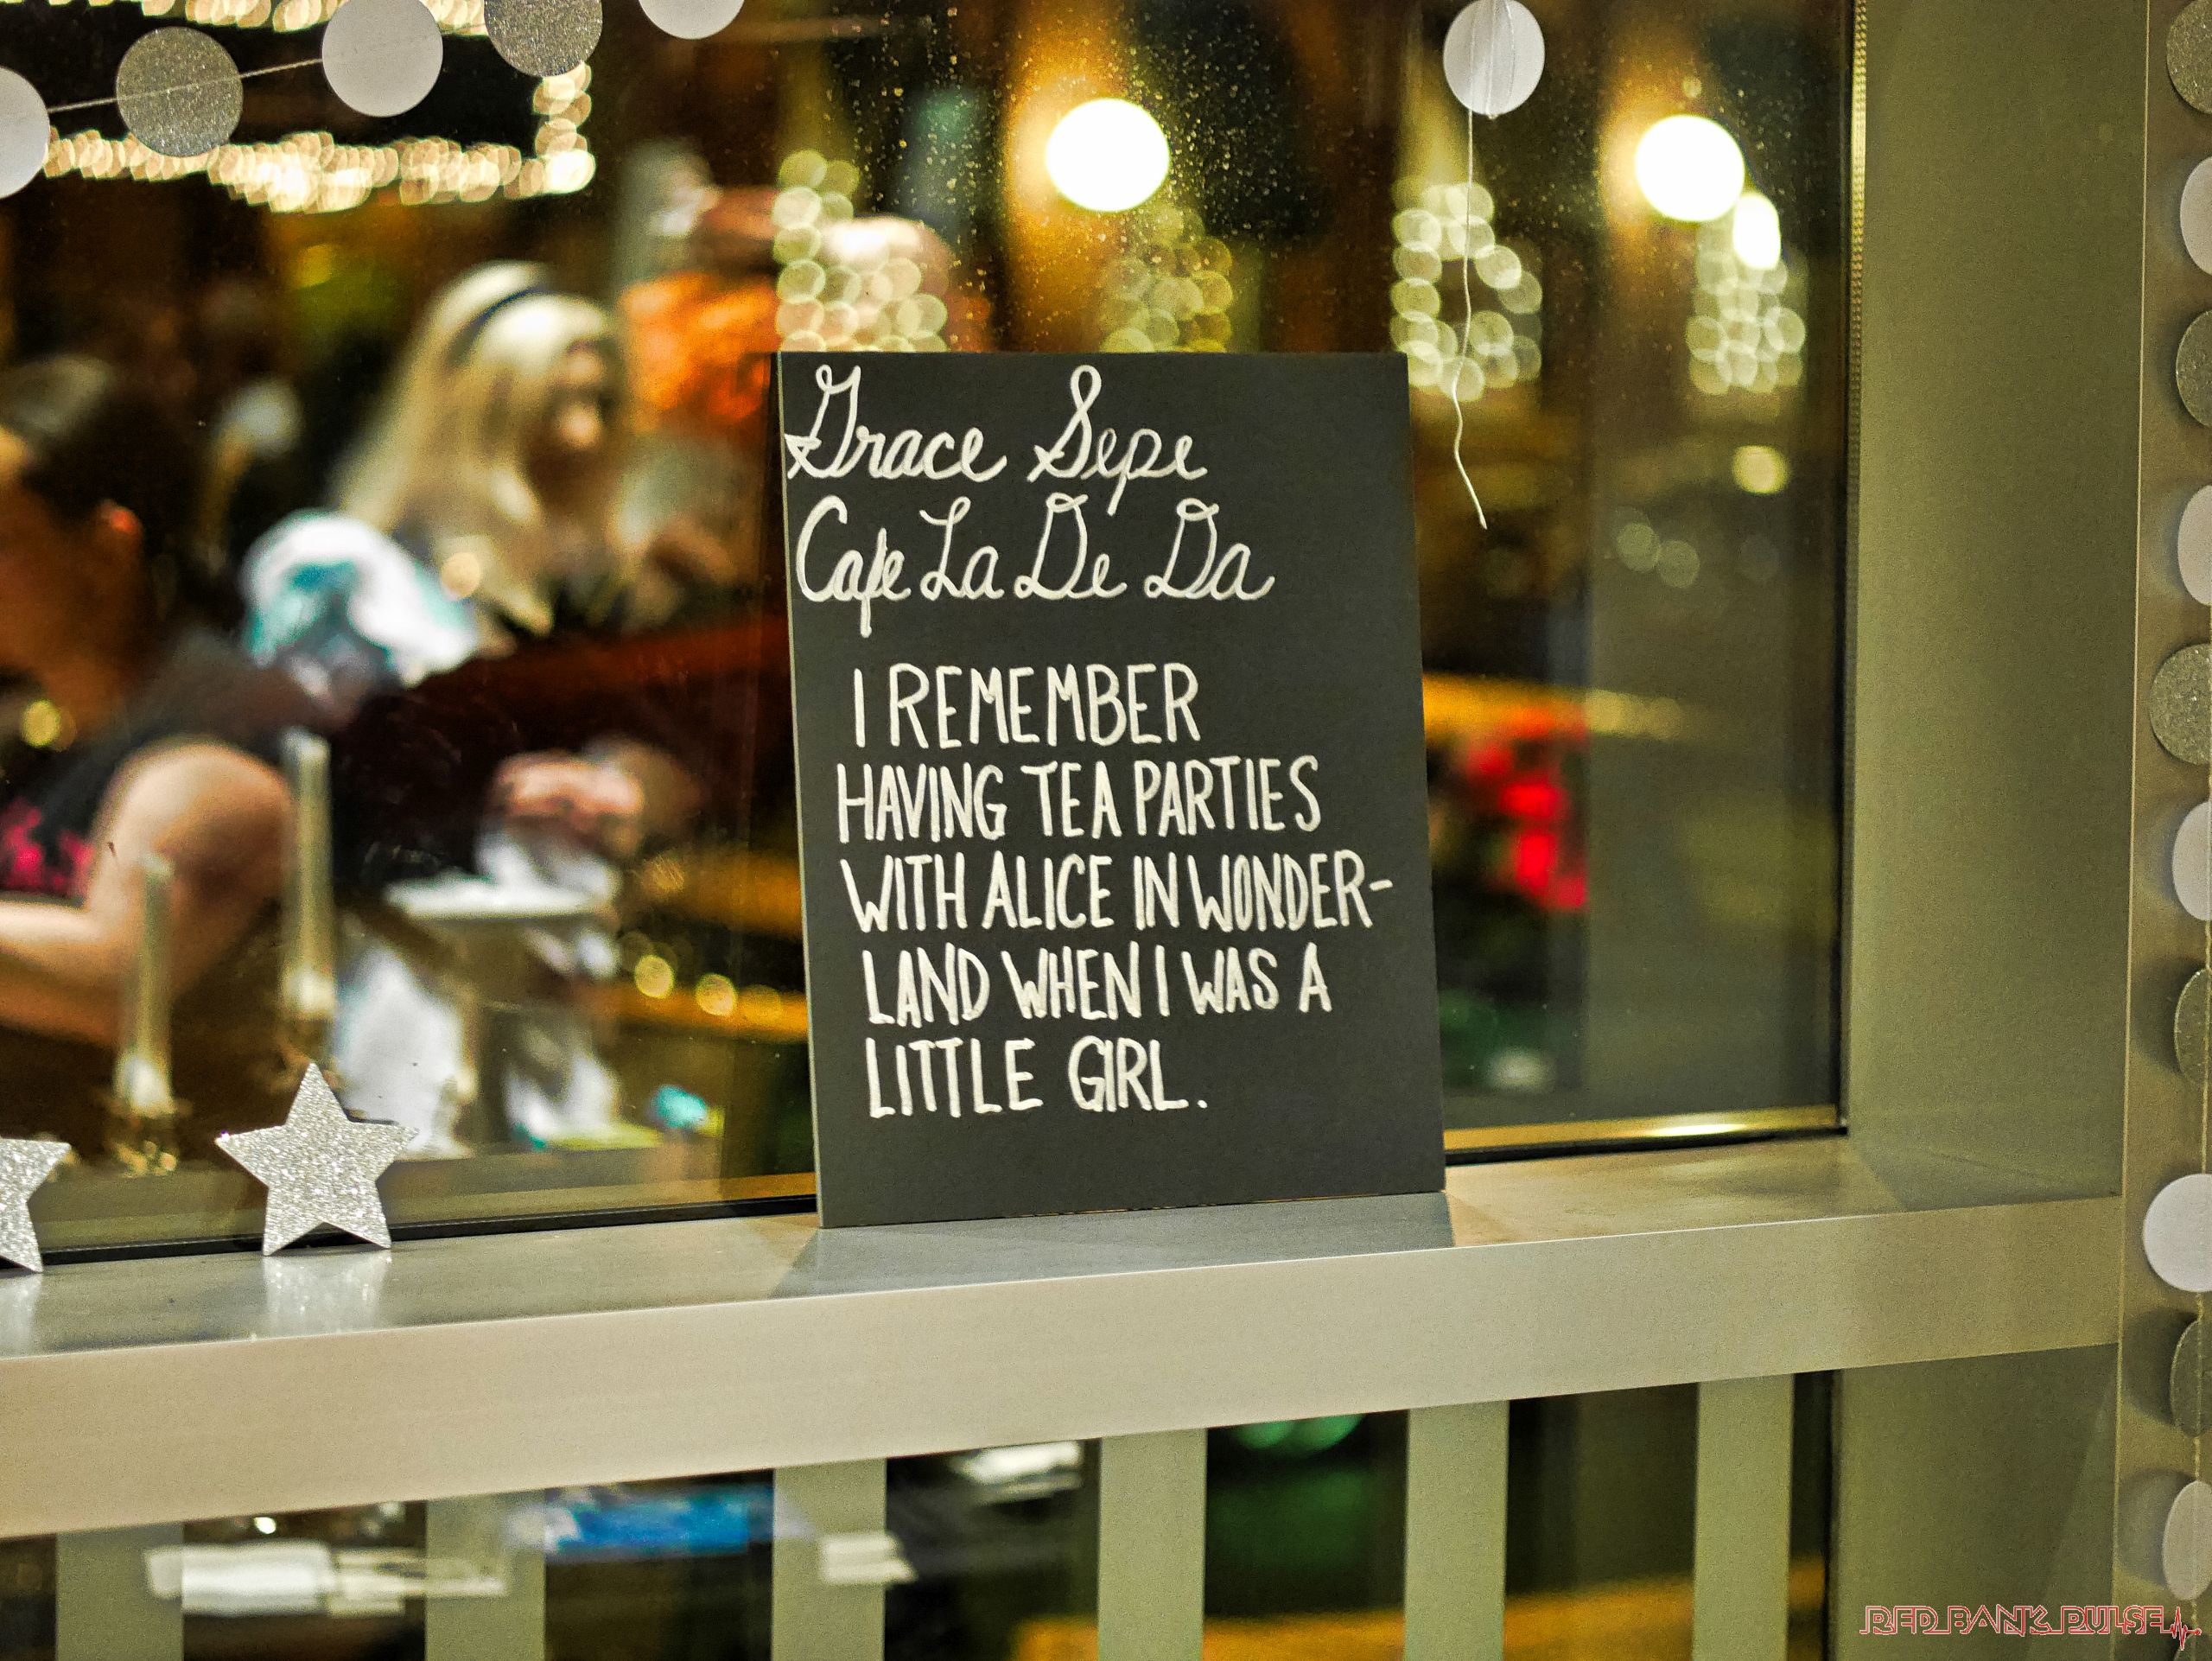 Grace Sepe
Cafe La De Da
I REMEMBER
HAVING TEA PARTIES
WITH ALICE IN WONDER-
LAND WHEN I WAS A
LITTLE GIRL.
RED BANK PULSE